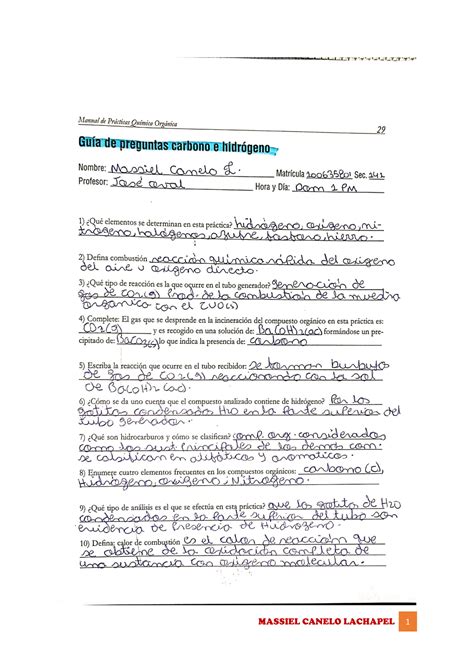 Manual de Prácticas Química Orgánica
29
Guía de preguntas carbono e hidrógeno
Nombre: Massiel Canelo L. Matrícula 100635801 Sec. 141
Profesor: José oval Hora y Día: Dom 1 PM
1) ¿Qué elementos se determinan en esta práctica? hidrógeno, oxígeno, ni-
trógeno, halógenos, azufre, fósforo, hierro.
2) Defina combustión reacción química rápida del oxígeno
del aire u oxígeno directo.
3) ¿Qué tipo de reacción es la que ocurre en el tubo generador? Generación de
gas de CO2(g) Prod. de la combustión de la muestra
orgánica con el CuO(s)
4) Complete: El gas que se desprende en la incineración del compuesto orgánico en esta práctica es:
CO2(g) y es recogido en una solución de: Ba(OH)2(ac) formándose un pre-
cipitado de: BaCO3(s) lo que indica la presencia de: carbono
5) Escriba la reacción que ocurre en el tubo recibidor: se forman burbujas
de gas de CO2(g) reaccionando con la sal
de Ba(OH)2(ac).
6) ¿Cómo se da uno cuenta que el compuesto analizado contiene de hidrógeno? Por las
gotitas condensadas H2O en la parte superior del
tubo generador.
7) ¿Qué son hidrocarburos y cómo se clasifican? comp. org. considerados
como las sust. Principales de los demas com.
se calsifican en alifáticos y aromáticos.
8) Enumere cuatro elementos frecuentes en los compuestos orgánicos: carbono (C),
Hidrógeno, oxígeno, Nitrógeno.
9) ¿Qué tipo de análisis es el que se efectúa en esta práctica? que las gotita de H2O
condensadas en la parte superior del tubo son
evidencia de Presencia de Hidrógeno.
10) Defina: calor de combustión es el calor de reacción que
se obtiene de la oxidación completa de
una sustancia con oxígeno molecular.
MASSIEL CANELO LACHAPEL 1